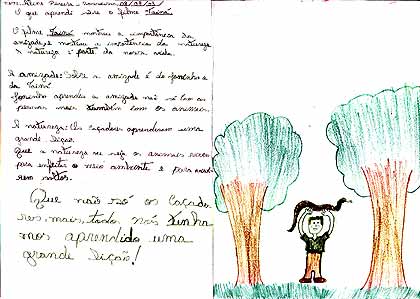 O que aprendi sobre o filme Tainá
O filme Tainá mostrou a importância da
amizade e mostrou a importância da natureza
A natureza é parte da nossa vida.
A amizade: Sobre a amizade é do Joninho e
da Tainá
Joninho aprendeu a amizade não só com as
pessoas mais também com os animais.
A natureza: Os caçadores aprenderam uma
grande lição.
Que a natureza
para enfeitar o meio ambiente e para
soltos.
Que não só os caçado
res, mais, todo nós tinha
mos aprendido uma
grande lição!